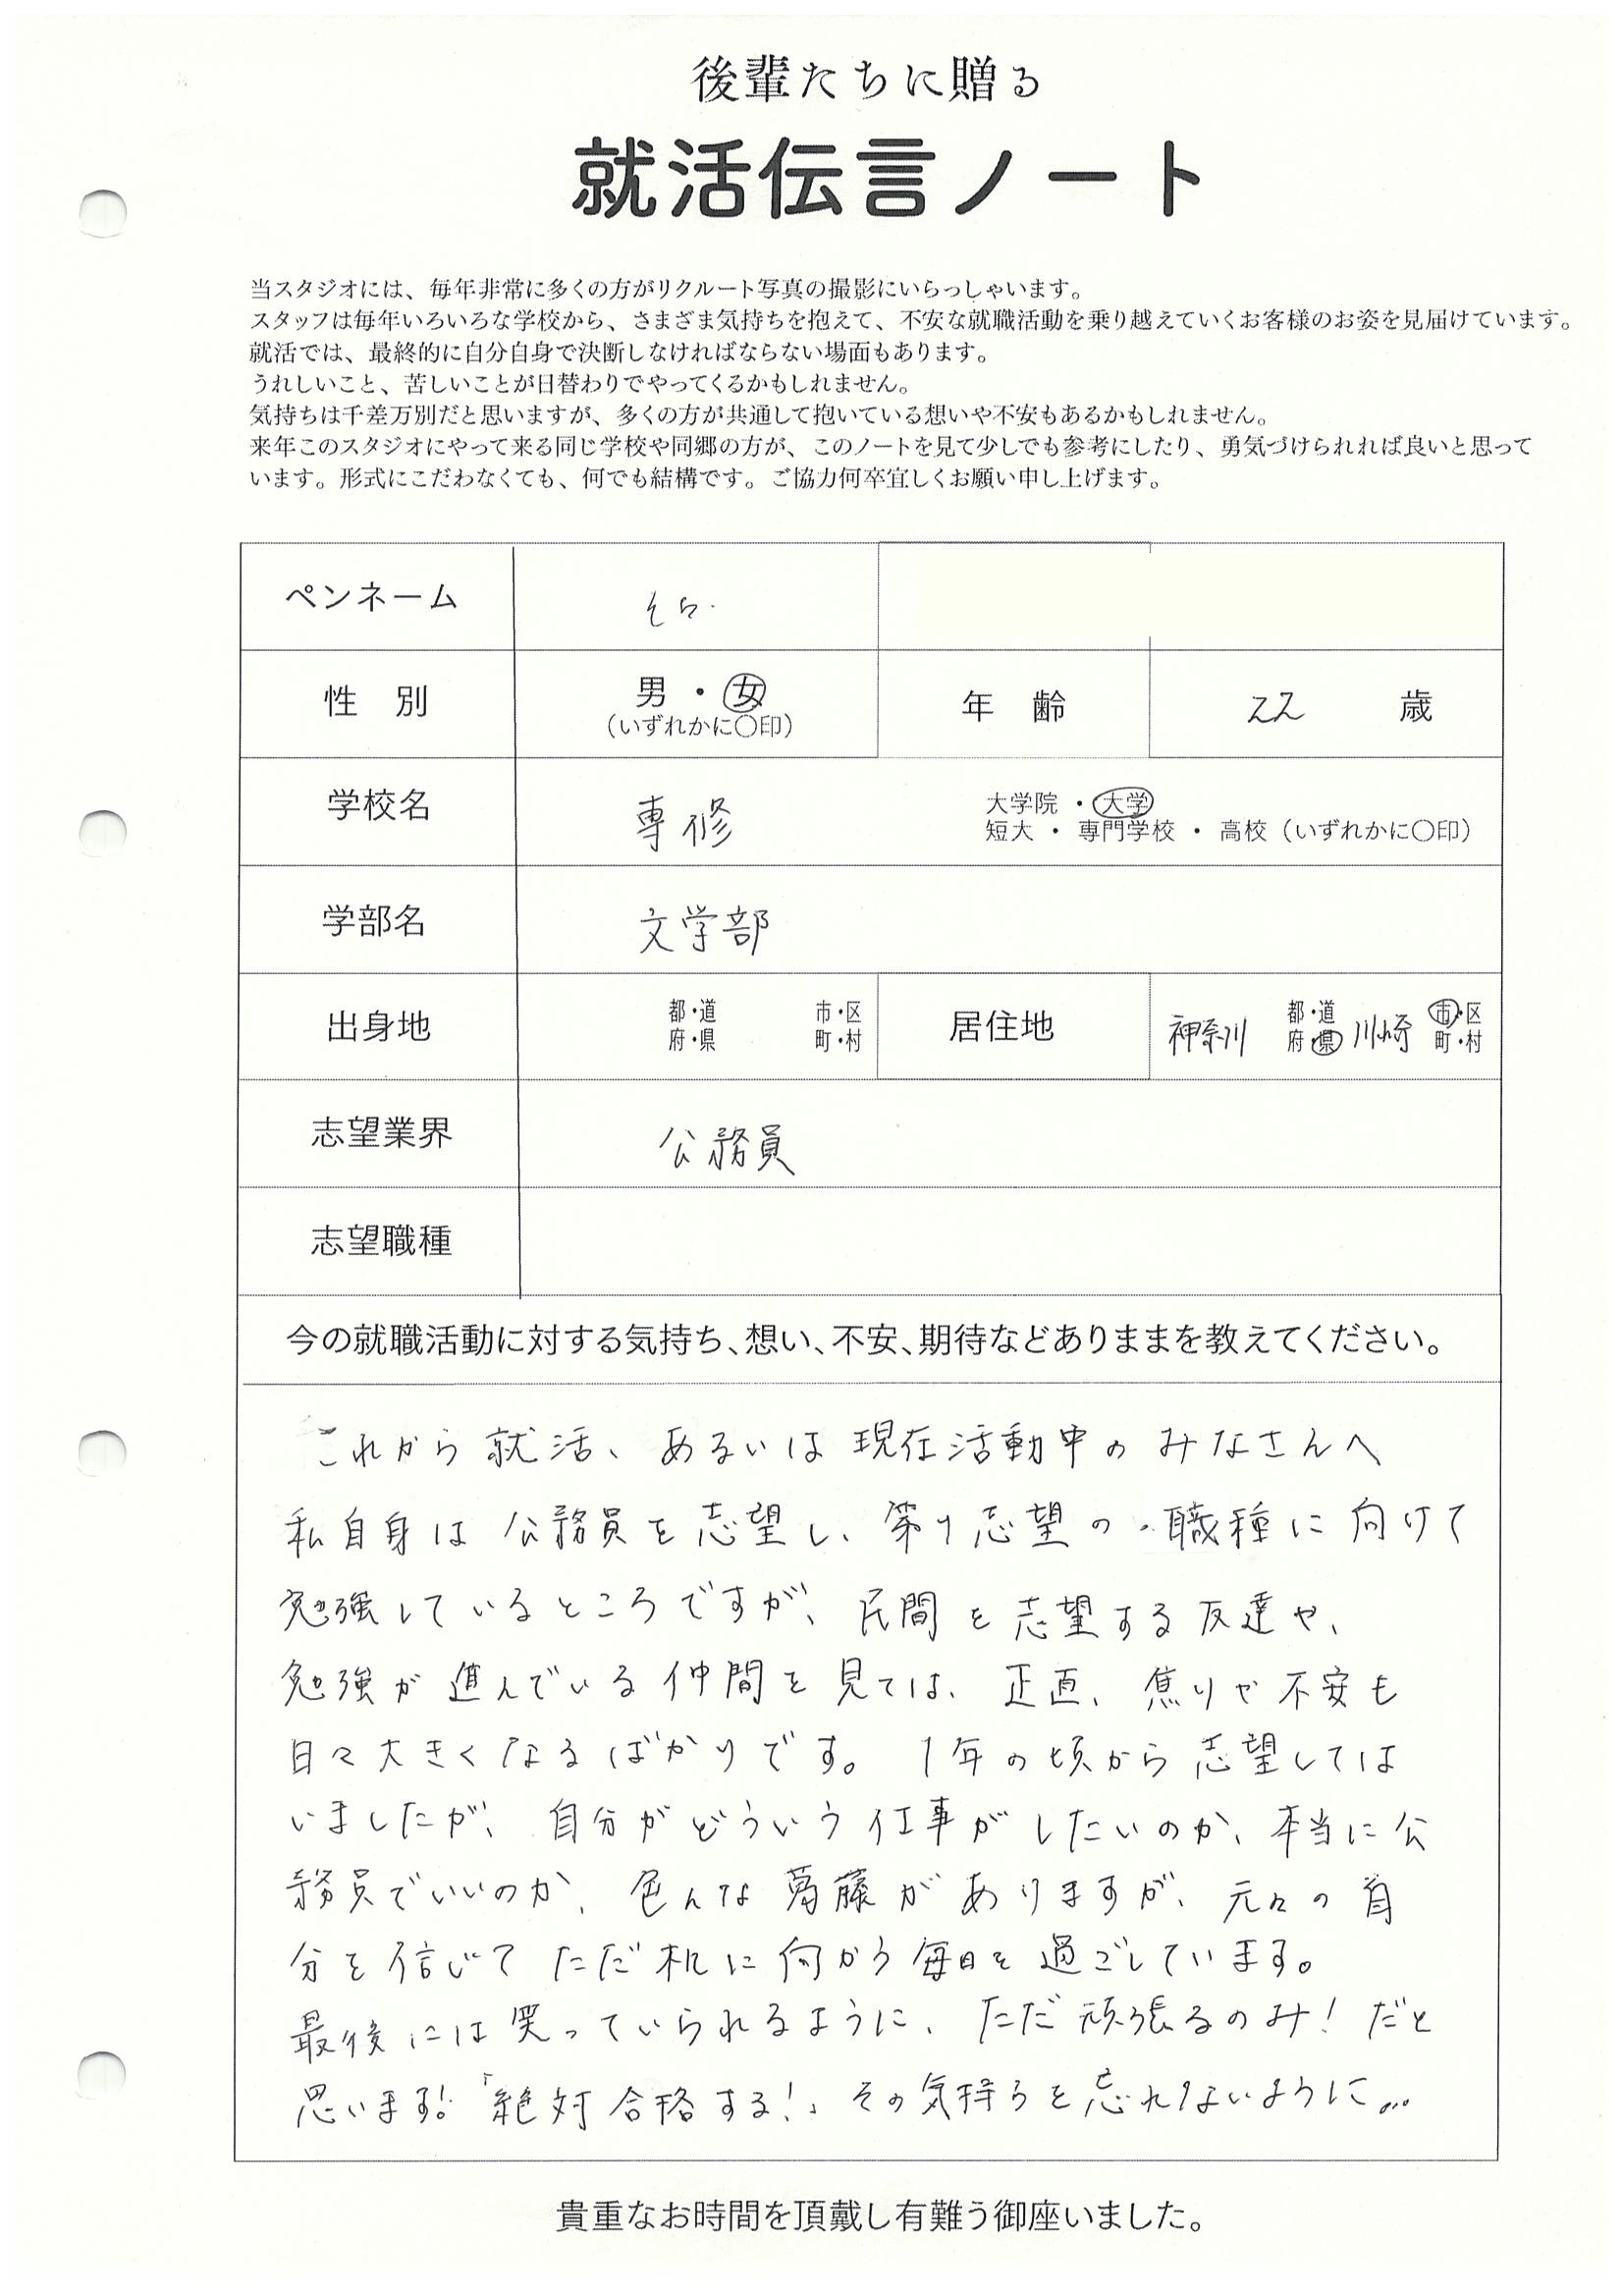 後輩たちに贈る
就活伝言ノート
当スタジオには、毎年非常に多くの方がリクルート写真の撮影にいらっしゃいます。
スタッフは毎年いろいろな学校から、さまざま気持ちを抱えて、不安な就職活動を乗り越えていくお客様のお姿を見届けています。
就活では、最終的に自分自身で決断しなければならない場面もあります。
うれしいこと、苦しいことが日替わりでやってくるかもしれません。
気持ちは千差万別だと思いますが、多くの方が共通して抱いている想いや不安もあるかもしれません。
来年このスタジオにやって来る同じ学校や同郷の方が、このノートを見て少しでも参考にしたり、勇気づけられれば良いと思って
います。形式にこだわなくても、何でも結構です。ご協力何卒宜しくお願い申し上げます。
ペンネーム そら.
性 別 男 ・ 女 年 齢 22 歳
(いずれかに○印)
学校名 専修 大学院 ・ 大学
短大 ・ 専門学校 ・ 高校 (いずれかに○印)
学部名 文学部
出身地 都・道 市・区 居住地 神奈川 都・道 川崎 市・区
府・県 町・村 府・県 町・村
志望業界 公務員
志望職種
今の就職活動に対する気持ち、想い、不安、期待などありままを教えてください。
これから就活、あるいは現在活動中のみなさんへ
私自身は公務員を志望し、第1志望の職種に向けて
勉強しているところですが、民間を志望する友達や、
勉強が進んでいる仲間を見ては、正直、焦りや不安も
日々大きくなるばかりです。1年の頃から志望しては
いましたが、自分がどういう仕事がしたいのか、本当に公
務員でいいのか、色んな葛藤がありますが、元々の自
分を信じてただ机に向かう毎日を過ごしています。
最後には笑っていられるように、ただ頑張るのみ!だと
思います!「絶対合格する!」その気持ちを忘れないように...
貴重なお時間を頂戴し有難う御座いました。